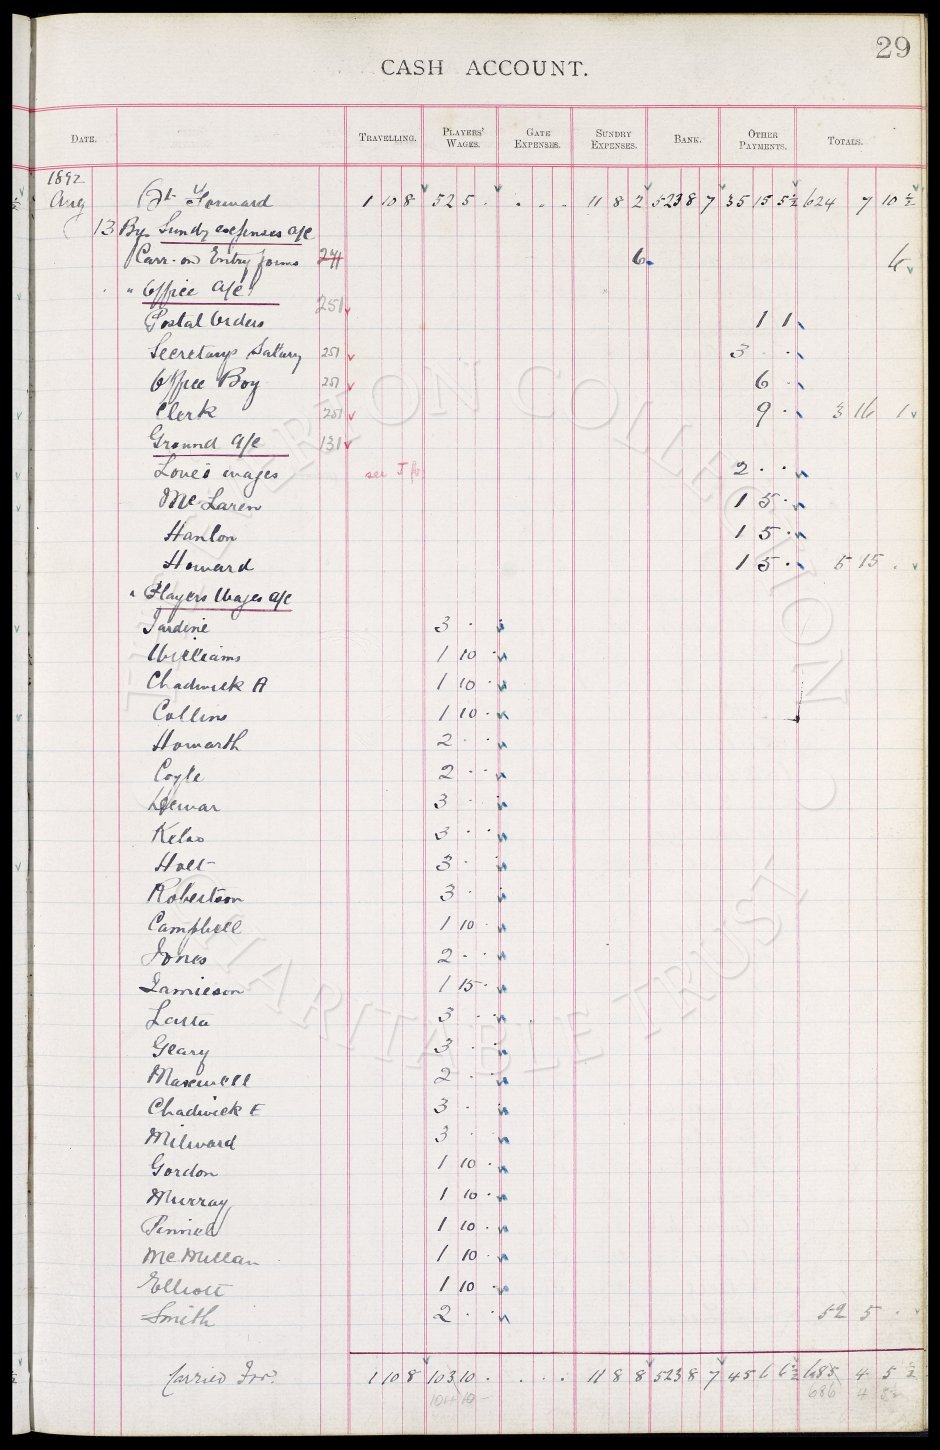 29
CASH ACCOUNT.
DATE. TRAVELLING. PLAYERS' WAGES. GATE EXPENSES. SUNDRY EXPENSES. BANK. OTHER PAYMENTS. TOTALS.
1892
Aug Bt Forward 1 10 8 52 5 . . . . 11 8 2 523 8 7 35 15 5½ 624 7 10½
13 By Sundry expenses a/c
Carr. on Entry forms 271 6 6
" Office a/c
Postal Orders 251 1 1
Secretarys Sallary 251 3 . .
Office Boy 251 6 .
Clerk 251 9 . 3 16 1
Ground a/c 131
Love's wages see J 2 . .
McLaren 1 5 .
Hanlon 1 5 .
Howard 1 5 . 5 15 .
" Players Wages a/c
Jardine 3 . .
Williams 1 10 .
Chadwick A 1 10 .
Collins 1 10 .
Howarth 2 . .
Coyle 2 . .
Dewar 3 . .
Kelso 3 . .
Holt 3 . .
Robertson 3 . .
Campbell 1 10 .
Jones 2 . .
Jamieson 1 15 .
Latta 3 . .
Geary 3 . .
Maxwell 2 . .
Chadwick E 3 . .
Milward 3 . .
Gordon 1 10 .
Murray 1 10 .
Pinnell 1 10 .
McMillan 1 10 .
Elliott 1 10 .
Smith 2 . . 52 5 .
Carried For. 1 10 8 103 10 . . . . 11 8 8 523 8 7 45 6 6½ 685 4 5½
104 10 – 686 4 5½
THE EVERTON COLLECTION CHARITABLE TRUST ©